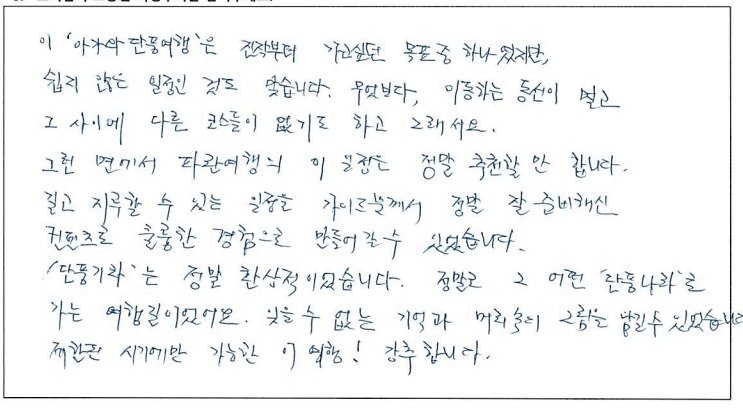 이 '아가와 단풍여행'은 진작부터 가고싶던 목표중 하나였지만,
쉽지 않은 일정인 것도 맞습니다. 무엇보다, 이동하는 동선이 멀고
그 사이에 다른 코스들이 없기도 하고 그래서요.
그런 면에서 파란여행의 이 일정은 정말 추천할 만 합니다.
길고 지루할 수 있는 일정을 가이드분께서 정말 잘 준비해신
컨텐츠로 훌륭한 경험으로 만들어갈 수 있었습니다.
'단풍기차'는 정말 환상적이었습니다. 정말로 그 어떤 '단풍나라'로
가는 여행길이었어요. 잊을 수 없는 기억과 머리속의 그림을 남길수 있었습니다
제한된 시기에만 가능한 이 여행! 강추합니다.